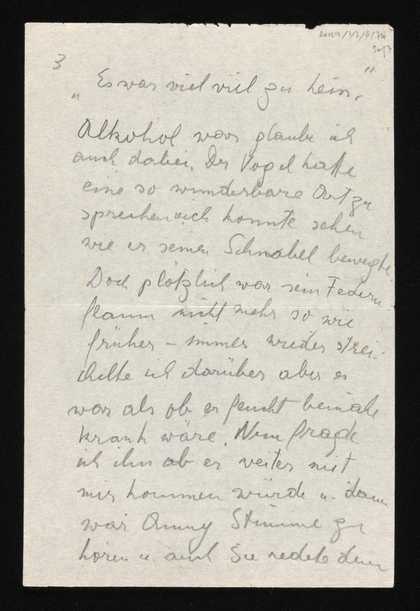 3
„Es war viel viel zu klein."
Alkohol war glaube ich
auch dabei. Der Vogel hatte
eine so wunderbare Art zu
sprechen ich konnte sehen
wie er seinen Schnabel bewegte
Doch plötzlich war sein Federn
flaum nicht mehr so wie
früher – immer wieder strei-
chelte ich darüber aber es
war als ob er feucht beinahe
krank wäre. Nun fragte
ich ihn ob er weiter mit
mir kommen würde u. dann
war Anny Stimme zu
hören u. auch Sie redete dem